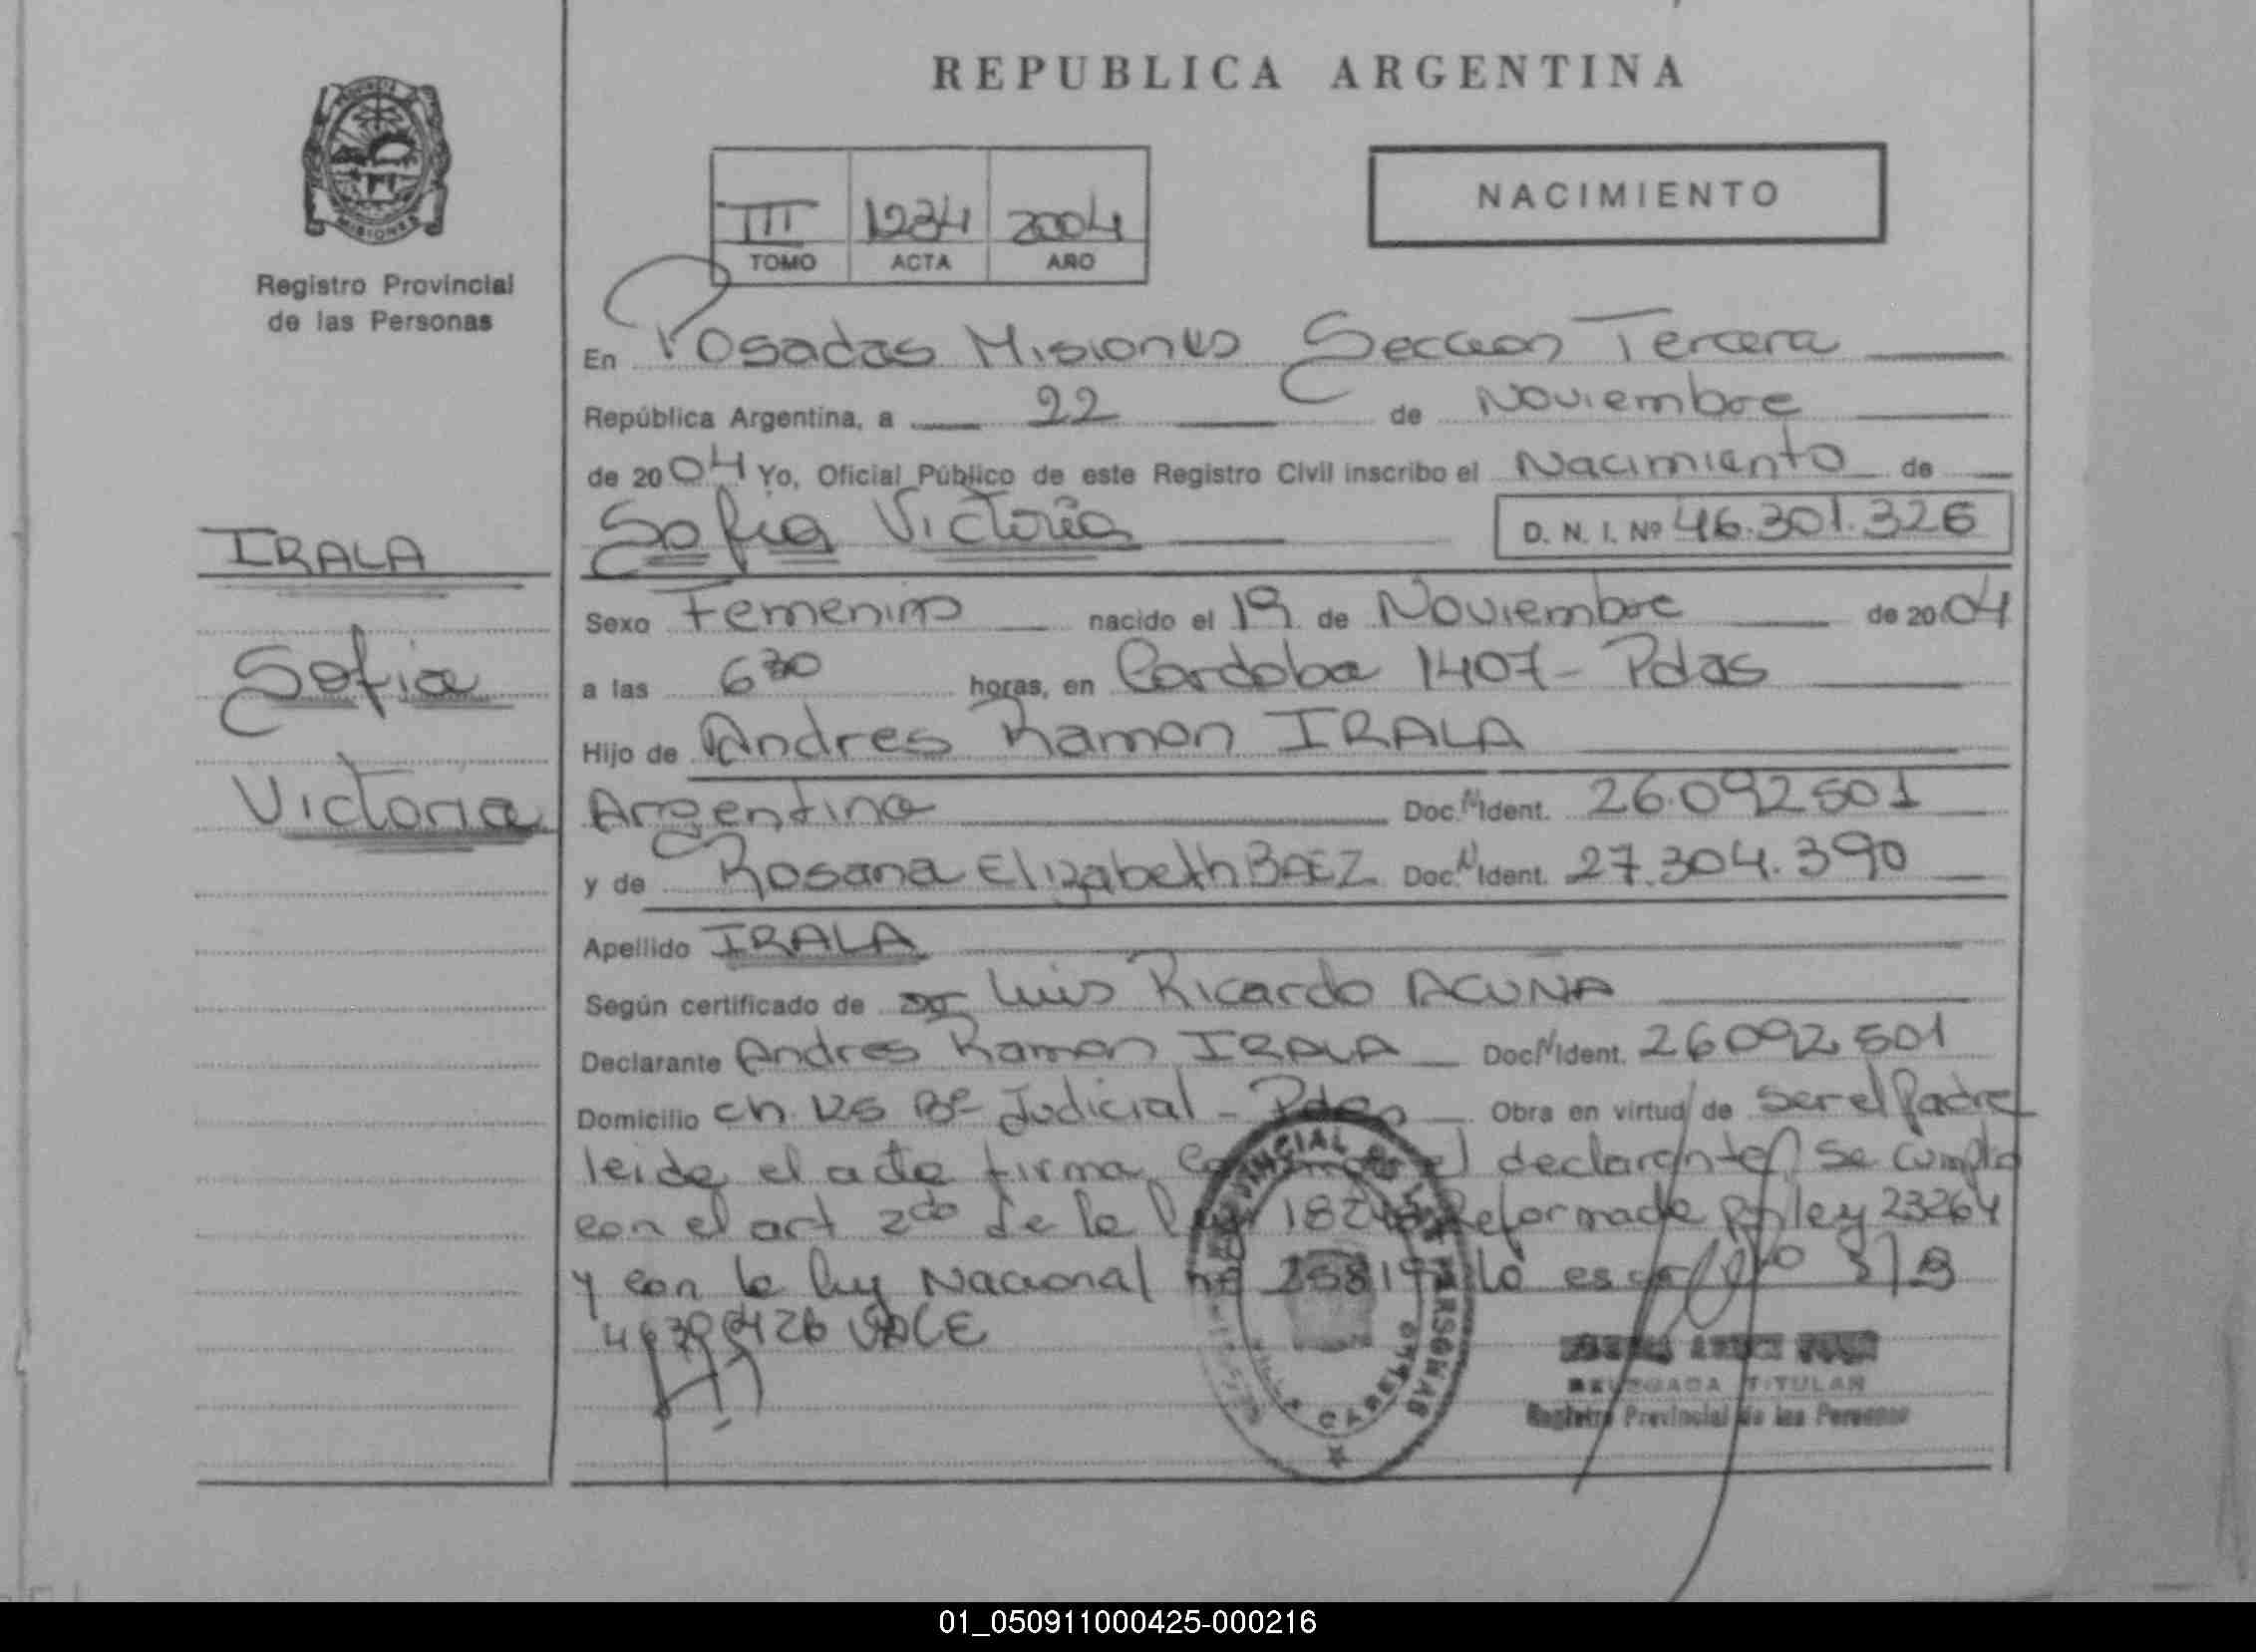 REPUBLICA ARGENTINA
PROVINCIA
MISIONES
Registro Provincial
de las Personas
III 1234 2004
TOMO ACTA AÑO
NACIMIENTO
En Posadas Misiones Seccion Tercera
República Argentina, a 22 de Noviembre
de 2004 Yo, Oficial Público de este Registro Civil inscribo el Nacimiento de
Sofia Victoria D. N. I. Nº 46.301.326
IRALA
Sofia
Victoria
Sexo Femenino nacido el 19 de Noviembre de 2004
a las 6 30 horas, en Cordoba 1407 - Pdas
Hijo de Andres Ramon IRALA
Argentino Doc. N Ident. 26.092501
y de Rosana Elizabeth BAEZ Doc. N Ident. 27.304.390
Apellido IRALA
Según certificado de Luis Ricardo ACUÑA
Declarante Andres Ramon IRALA Doc N Ident. 26092501
Domicilio ch. Bº Judicial - Pdas Obra en virtud de ser el Padre
leida el acta firma el declarante Se cumple
con el art 2do de la 18248 Reformada p ley 23264
y con la ley Nacional 
VALE
DELEGADA TITULAR
Registro Provincial de las Personas
01_050911000425-000216